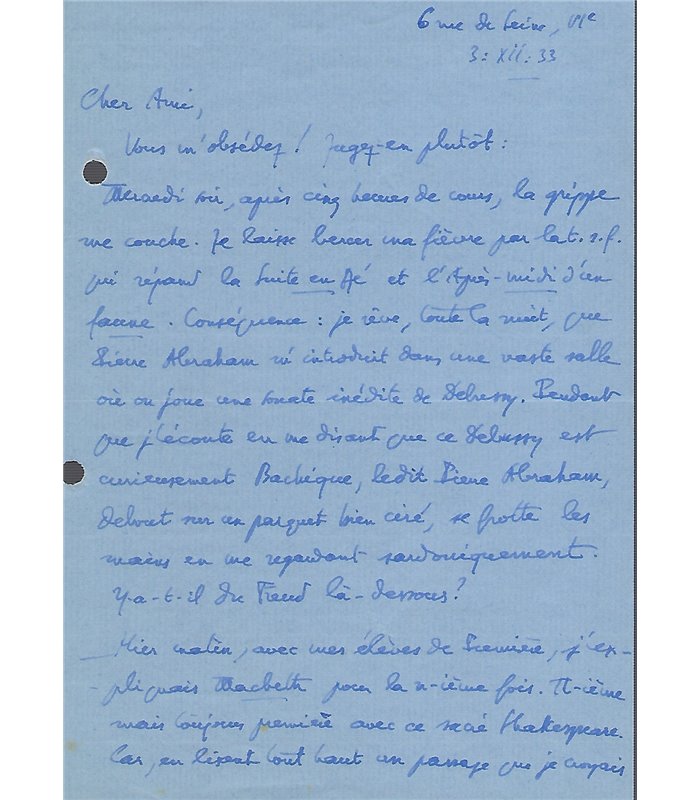 6 rue de Seine, VIe
3 = XII = 33
Cher Ami,
Vous m'obsédez ! Jugez-en plutôt :
Mercredi soir, après cinq heures de cours, la grippe
me couche. Je laisse bercer ma fièvre par la t.s.f.
qui répand la Suite en Ré et l'Après-midi d'un
faune. Conséquence : je rêve, toute la nuit, que
Pierre Abraham m'introduit dans une vaste salle
où on joue une sonate inédite de Debussy. Pendant
que j'écoute en me disant que ce Debussy est
curieusement Bachique, ledit Pierre Abraham,
debout sur un parquet bien ciré, se frotte les
mains en me regardant sardoniquement.
Y-a-t-il du Freud là-dessous ?
Hier matin, avec mes élèves de Première, j'ex-
pliquais Macbeth pour la n-ième fois. N-ième
mais toujours première avec ce sacré Shakespeare.
Car, en lisant tout haut un passage que je croyais